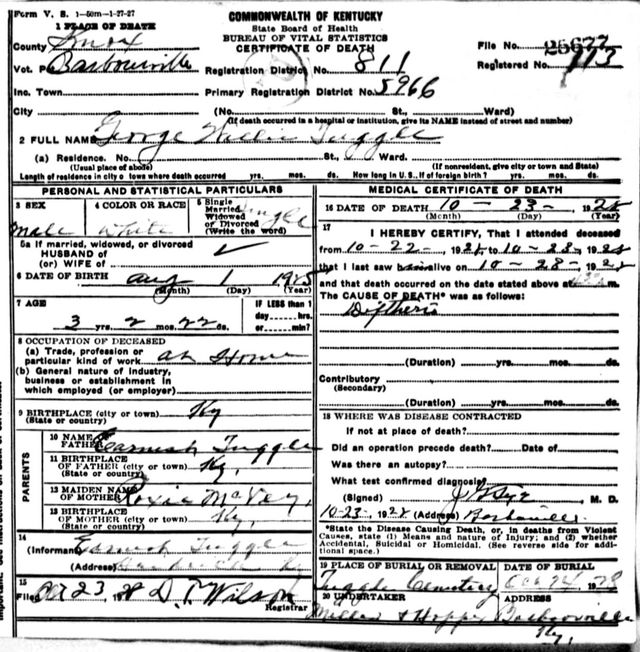 Form V. S. 1-50m-1-27-27
COMMONWEALTH OF KENTUCKY
State Board of Health
BUREAU OF VITAL STATISTICS
CERTIFICATE OF DEATH
1 PLACE OF DEATH
County Knox
Vot. Barbourville
Inc. Town
City
File No. 25677
Registered No. 113
Registration District No. 811
Primary Registration District No. 5966
(No. St., Ward)
(If death occurred in a hospital or institution, give its NAME instead of street and number)
2 FULL NAME George Willie Tuggle
(a) Residence. No. St., Ward.
(Usual place of abode) (If nonresident, give city or town and State)
Length of residence in city or town where death occurred yrs. mos. ds. How long in U. S., if of foreign birth? yrs. mos. ds.
PERSONAL AND STATISTICAL PARTICULARS
3 SEX Male
4 COLOR OR RACE White
5 Single Married Widowed or Divorced (Write the word) Single
5a If married, widowed, or divorced
HUSBAND of
(or) WIFE of
6 DATE OF BIRTH Aug 1 1925
(Month) (Day) (Year)
7 AGE
3 yrs. 2 mos. 22 ds.
IF LESS than 1 day hrs. or min?
8 OCCUPATION OF DECEASED
(a) Trade, profession or particular kind of work at Home
(b) General nature of industry, business or establishment in which employed (or employer)
9 BIRTHPLACE (city or town) Ky
(State or country)
PARENTS
10 NAME FATHER Tuggle
11 BIRTHPLACE OF FATHER (city or town) Ky,
(State or country)
12 MAIDEN NAME OF MOTHER Roxie McVey,
13 BIRTHPLACE OF MOTHER (city or town) Ky,
(State or country)
14
(Informant Tuggle
(Address Ky
15
Filed Oct 23 1928 D. T. Wilson
Registrar
MEDICAL CERTIFICATE OF DEATH
16 DATE OF DEATH 10 - 23 - 1928
(Month) (Day) (Year)
17
I HEREBY CERTIFY, That I attended deceased
from 10-22-, 1928, to 10-28-, 1928
that I last saw alive on 10-28-, 1928
and that death occurred on the date stated above at m.
The CAUSE OF DEATH* was as follows:
Diftheria
(Duration) yrs. mos. ds.
Contributory
(Secondary)
(Duration) yrs. mos. ds.
18 WHERE WAS DISEASE CONTRACTED
If not at place of death?
Did an operation precede death? Date of
Was there an autopsy?
What test confirmed diagnosis?
(Signed) M. D.
10-23-, 1928 (Address) Barbourville
*State the Disease Causing Death, or, in deaths from Violent
Causes, state (1) Means and nature of Injury; and (2) whether
Accidental, Suicidal or Homicidal. (See reverse side for addi-
tional space.)
19 PLACE OF BURIAL OR REMOVAL DATE OF BURIAL
Tuggle Cemetery Oct 24 1928
20 UNDERTAKER ADDRESS
Miller & Hopper Barbourville
Ky,